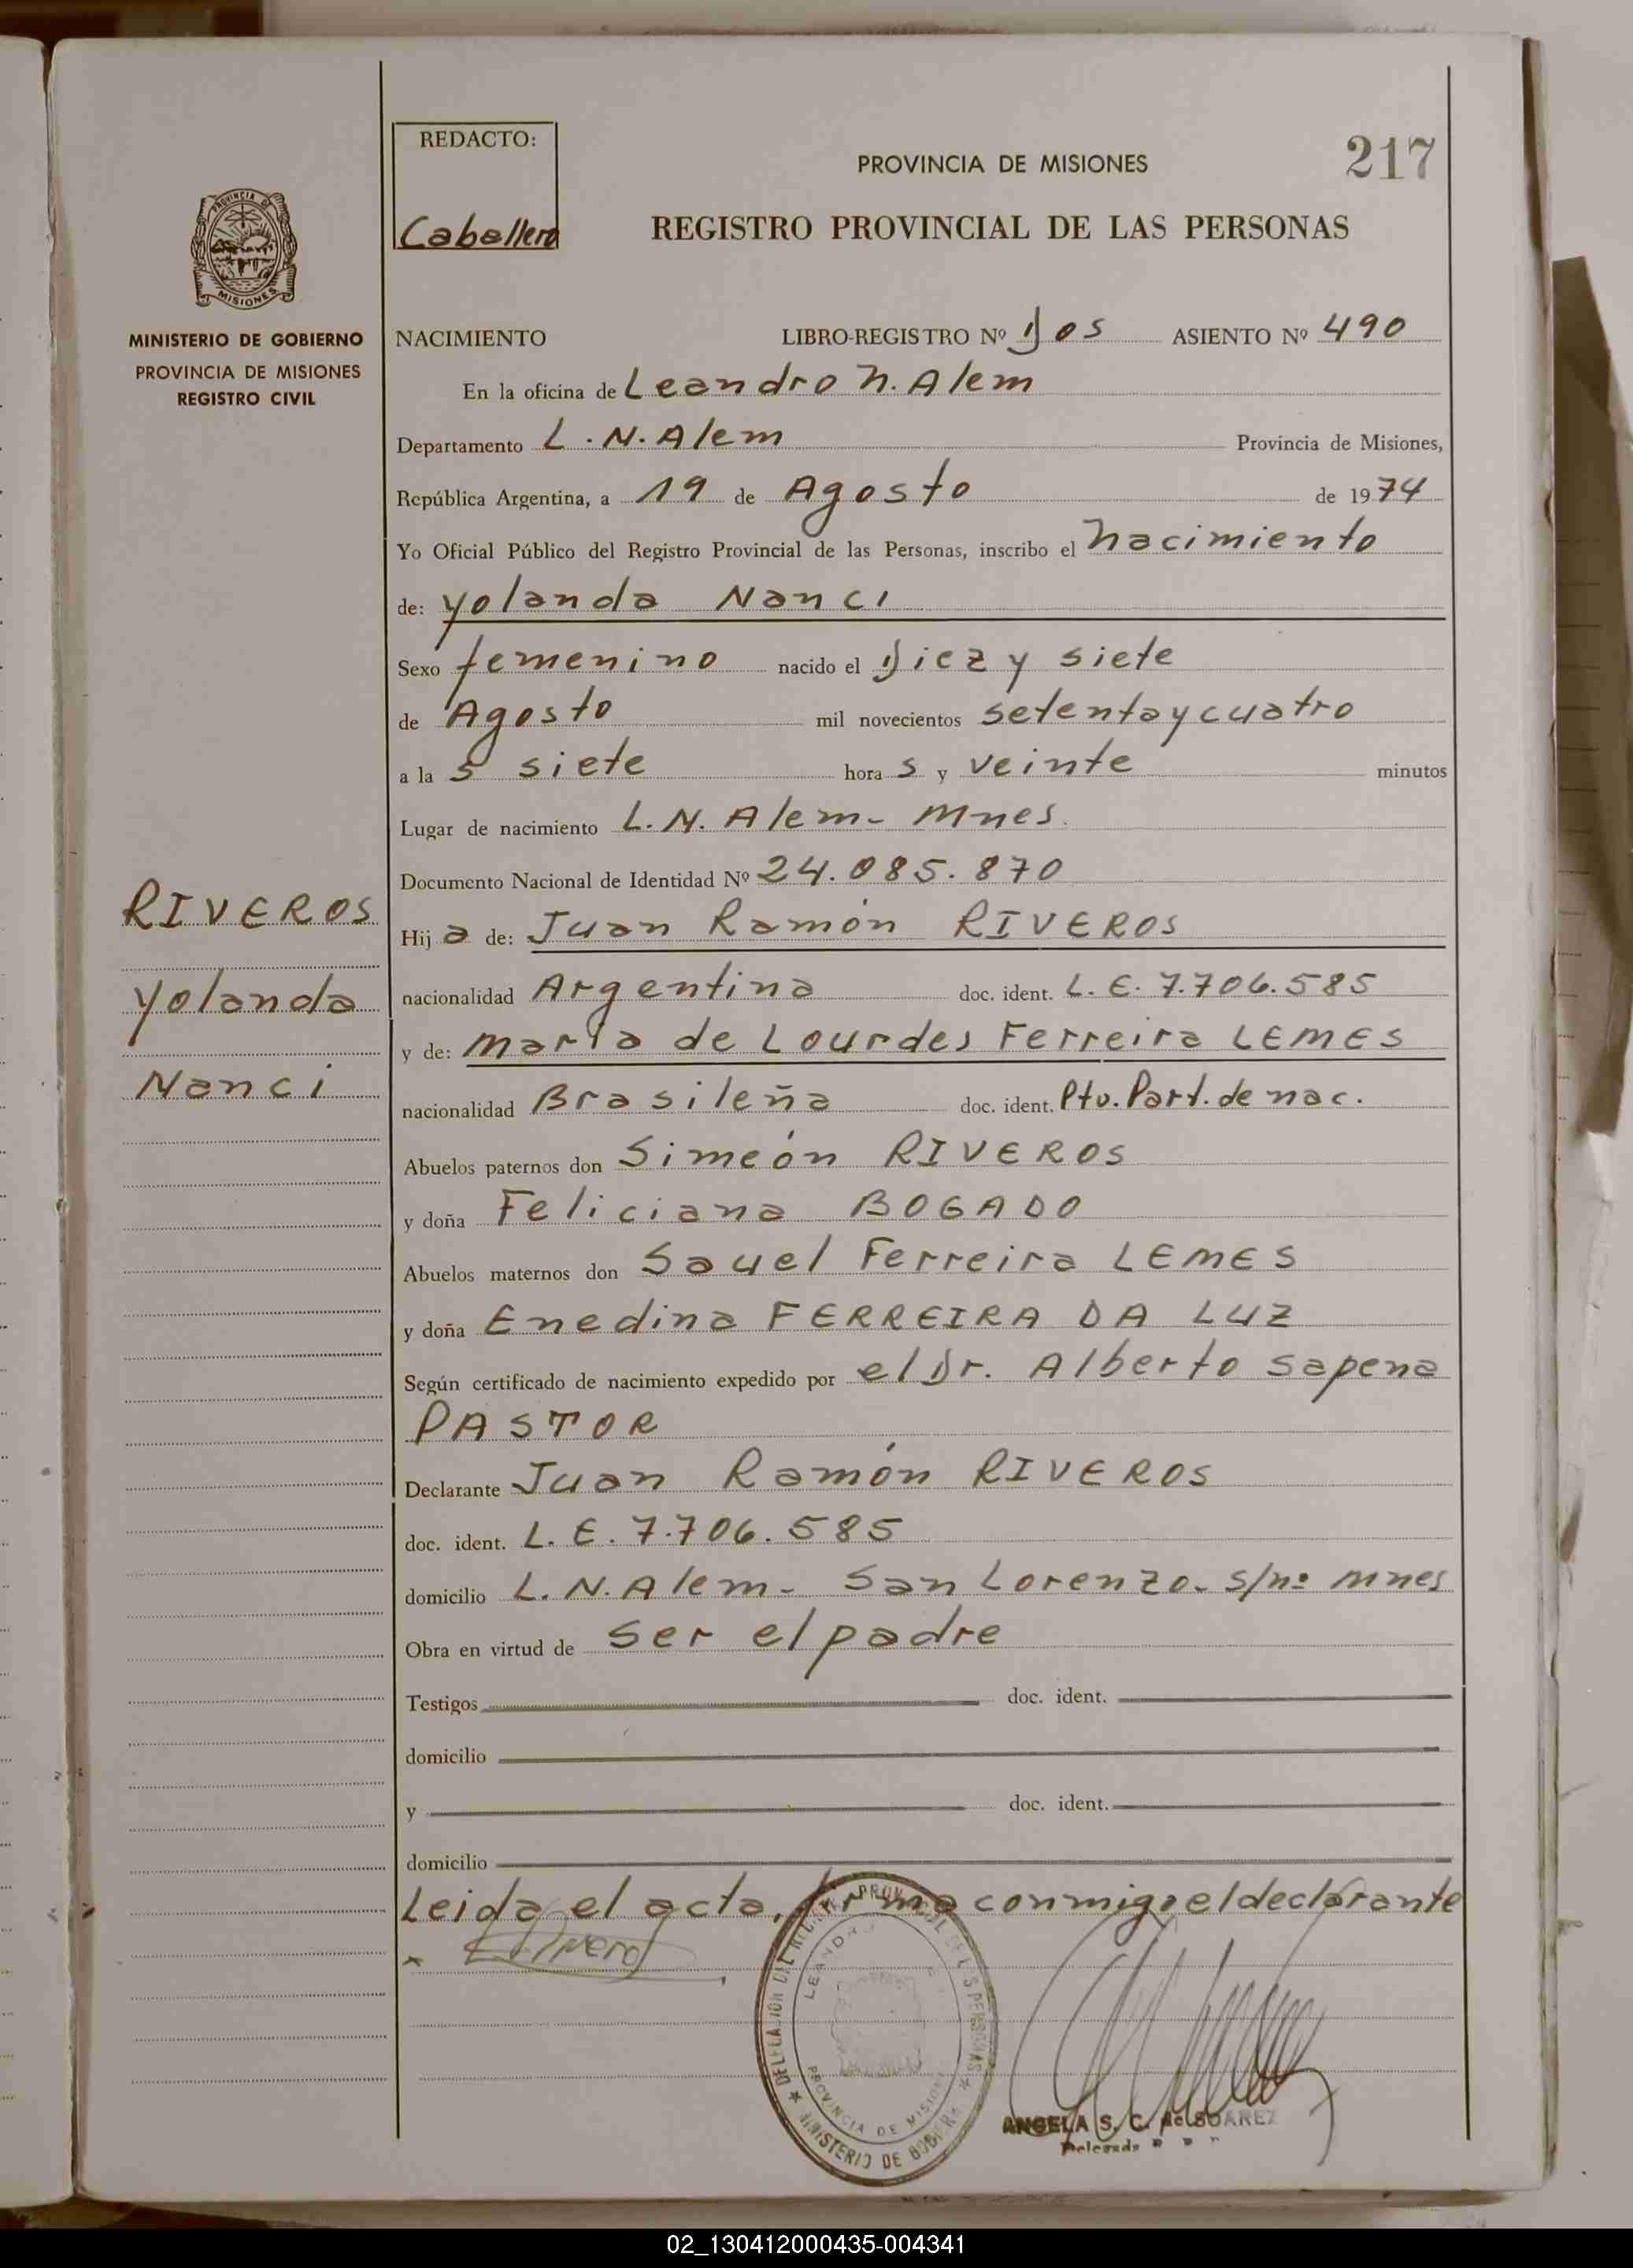 REDACTO:
Caballero
PROVINCIA DE MISIONES
217
REGISTRO PROVINCIAL DE LAS PERSONAS
PROVINCIA DE
MISIONES
MINISTERIO DE GOBIERNO
PROVINCIA DE MISIONES
REGISTRO CIVIL
NACIMIENTO LIBRO-REGISTRO Nº Dos ASIENTO Nº 490
En la oficina de Leandro N. Alem
Departamento L. N. Alem Provincia de Misiones,
República Argentina, a 19 de Agosto de 1974
Yo Oficial Público del Registro Provincial de las Personas, inscribo el nacimiento
de: Yolanda Nanci
Sexo femenino nacido el Diez y siete
de Agosto mil novecientos setenta y cuatro
a la s siete hora s y veinte minutos
Lugar de nacimiento L. N. Alem - Mnes.
Documento Nacional de Identidad Nº 24.085.870
RIVEROS
Yolanda
Nanci
Hij a de: Juan Ramón RIVEROS
nacionalidad Argentina doc. ident. L. E. 7.706.585
y de: María de Lourdes Ferreira LEMES
nacionalidad Brasileña doc. ident. Pto. Part. de nac.
Abuelos paternos don Simeón RIVEROS
y doña Feliciana BOGADO
Abuelos maternos don Sauel Ferreira LEMES
y doña Enedina FERREIRA DA LUZ
Según certificado de nacimiento expedido por el Dr. Alberto Sapena
PASTOR
Declarante Juan Ramón RIVEROS
doc. ident. L. E. 7.706.585
domicilio L. N. Alem - San Lorenzo - s/nº Mnes
Obra en virtud de Ser el padre
Testigos doc. ident.
domicilio
y doc. ident.
domicilio
Leida el acta, firma conmigo el declarante
DELEGACION DEL REGISTRO PROVINCIAL DE LAS PERSONAS
PROVINCIA DE MISIONES
MINISTERIO DE GOBIERNO
ANGELA S. C. de SUAREZ
Delegada
02_130412000435-004341